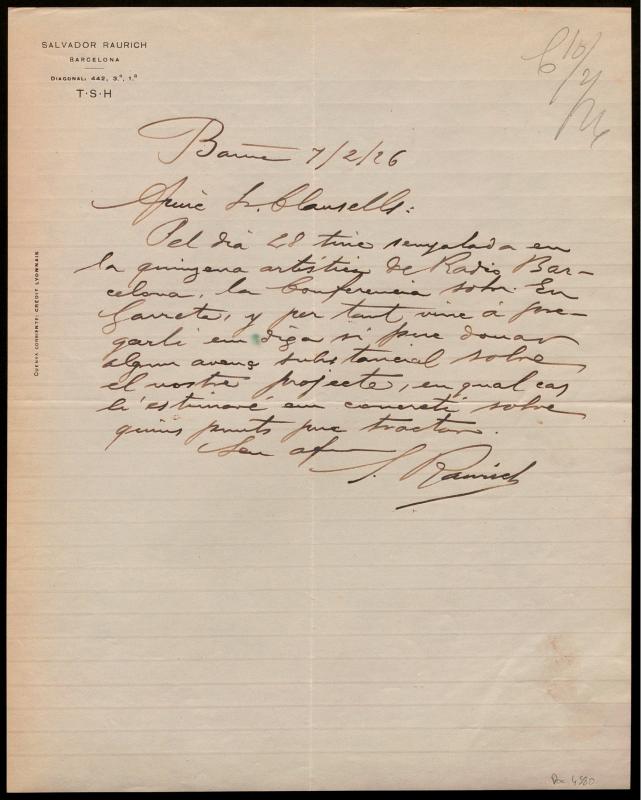 SALVADOR RAURICH
BARCELONA
DIAGONAL: 442, 3.º, 1.ª
T·S·H
C 10/2/26
Barna 7/2/26
Amic Sr. Clausells:
Pel dia 28 tinc senyalada en
la quinzena artística de Radio Bar-
celona, la Conferencia sobre En
Garreta, y per tant vinc á pre-
garli em diga si puc donar
algun avenç substancial sobre
el vostre projecte, en qual cas
li estimaré em concreti sobre
quins punts puc tractar.
Seu afm
S. Raurich
CUENTA CORRIENTE: CRÉDIT LYONNAIS
Doc 4980